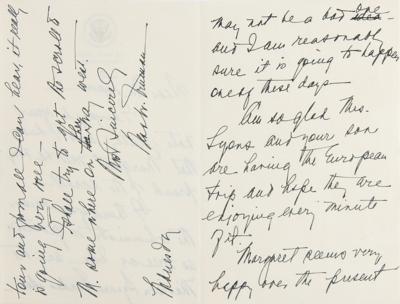 may not be a bad
and I am reasonably
sure it is going to happen
one of these days
Am so glad Mrs.
Lyons and your son
are having the European
trip and hope they are
enjoying every minute
of it.
Margaret seems very
happy over the present
tour and from all I can hear, it really
is going very
I shall try to get the scroll to
M. some where on west.
Most Sincerely
Bess W. Truman
Saturday